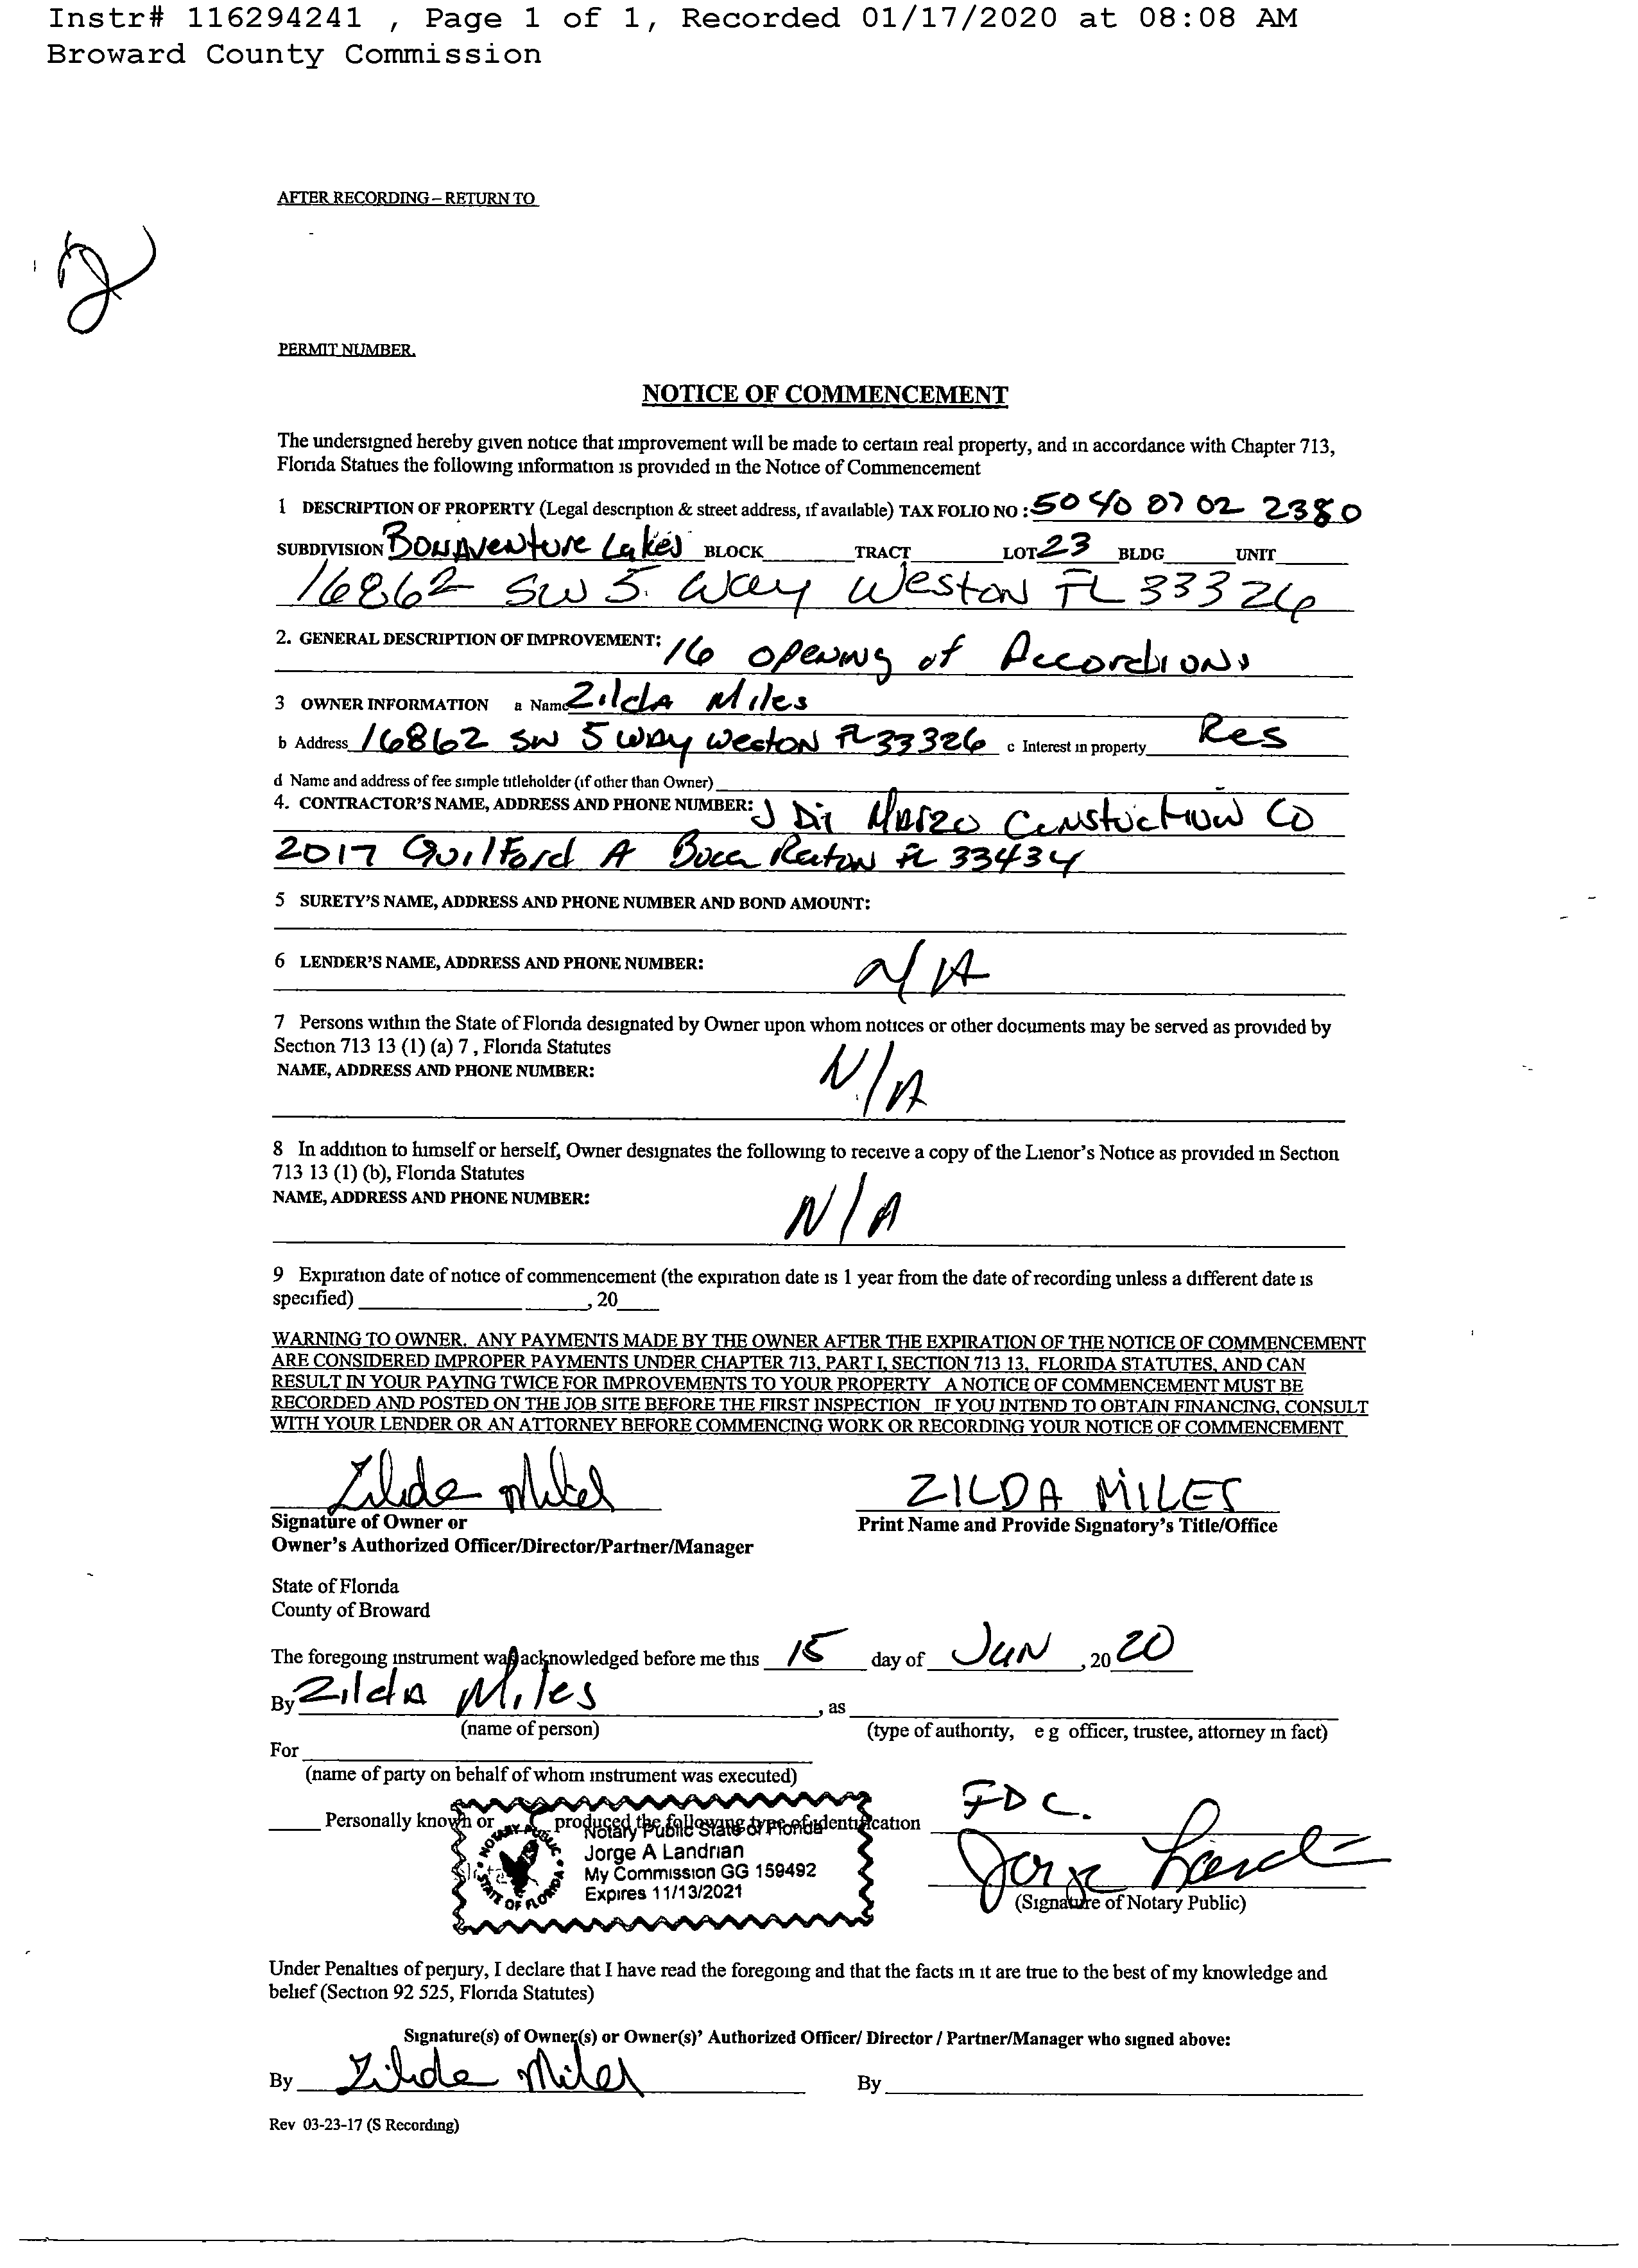 Instr# 116294241 , Page 1 of 1, Recorded 01/17/2020 at 08:08 AM
Broward County Commission
AFTER RECORDING – RETURN TO
PERMIT NUMBER.
NOTICE OF COMMENCEMENT
The undersigned hereby given notice that improvement will be made to certain real property, and in accordance with Chapter 713,
Florida Statues the following information is provided in the Notice of Commencement
1 DESCRIPTION OF PROPERTY (Legal description & street address, if available) TAX FOLIO NO : 5040 07 02 2380
SUBDIVISION Bonaventure Lakes BLOCK TRACT LOT 23 BLDG UNIT
16862 SW 5. Way Weston FL 33326
2. GENERAL DESCRIPTION OF IMPROVEMENT: 16 opening of Accordions
3 OWNER INFORMATION a Name Zilda Miles
b Address 16862 SW 5 Way Weston FL 33326 c Interest in property Res
d Name and address of fee simple titleholder (if other than Owner)
4. CONTRACTOR'S NAME, ADDRESS AND PHONE NUMBER: J Di Marzo Constuction Co
2017 Guilford A Boca Raton FL 33434
5 SURETY'S NAME, ADDRESS AND PHONE NUMBER AND BOND AMOUNT:
6 LENDER'S NAME, ADDRESS AND PHONE NUMBER: N/A
7 Persons within the State of Florida designated by Owner upon whom notices or other documents may be served as provided by
Section 713 13 (1) (a) 7 , Florida Statutes
NAME, ADDRESS AND PHONE NUMBER: N/A
8 In addition to himself or herself, Owner designates the following to receive a copy of the Lienor's Notice as provided in Section
713 13 (1) (b), Florida Statutes
NAME, ADDRESS AND PHONE NUMBER: N/A
9 Expiration date of notice of commencement (the expiration date is 1 year from the date of recording unless a different date is
specified) , 20
WARNING TO OWNER. ANY PAYMENTS MADE BY THE OWNER AFTER THE EXPIRATION OF THE NOTICE OF COMMENCEMENT
ARE CONSIDERED IMPROPER PAYMENTS UNDER CHAPTER 713, PART I, SECTION 713 13, FLORIDA STATUTES, AND CAN
RESULT IN YOUR PAYING TWICE FOR IMPROVEMENTS TO YOUR PROPERTY A NOTICE OF COMMENCEMENT MUST BE
RECORDED AND POSTED ON THE JOB SITE BEFORE THE FIRST INSPECTION IF YOU INTEND TO OBTAIN FINANCING, CONSULT
WITH YOUR LENDER OR AN ATTORNEY BEFORE COMMENCING WORK OR RECORDING YOUR NOTICE OF COMMENCEMENT
Zilda Miles ZILDA MILES
Signature of Owner or Print Name and Provide Signatory's Title/Office
Owner's Authorized Officer/Director/Partner/Manager
State of Florida
County of Broward
The foregoing instrument was acknowledged before me this 15 day of Jun , 20 20
By Zilda Miles , as
(name of person) (type of authority, e g officer, trustee, attorney in fact)
For
(name of party on behalf of whom instrument was executed)
Personally known or produced the following type of identification FDC.
Notary Public State of Florida
Jorge A Landrian
My Commission GG 159492
Expires 11/13/2021
NOTARY PUBLIC STATE OF FLORIDA
(Signature of Notary Public)
Under Penalties of perjury, I declare that I have read the foregoing and that the facts in it are true to the best of my knowledge and
belief (Section 92 525, Florida Statutes)
Signature(s) of Owner(s) or Owner(s)' Authorized Officer/ Director / Partner/Manager who signed above:
By Zilda Miles By
Rev 03-23-17 (S Recording)